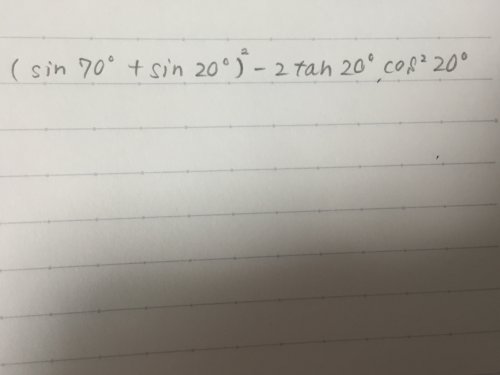 (sin 70° + sin 20°)² - 2 tan 20° cos² 20°